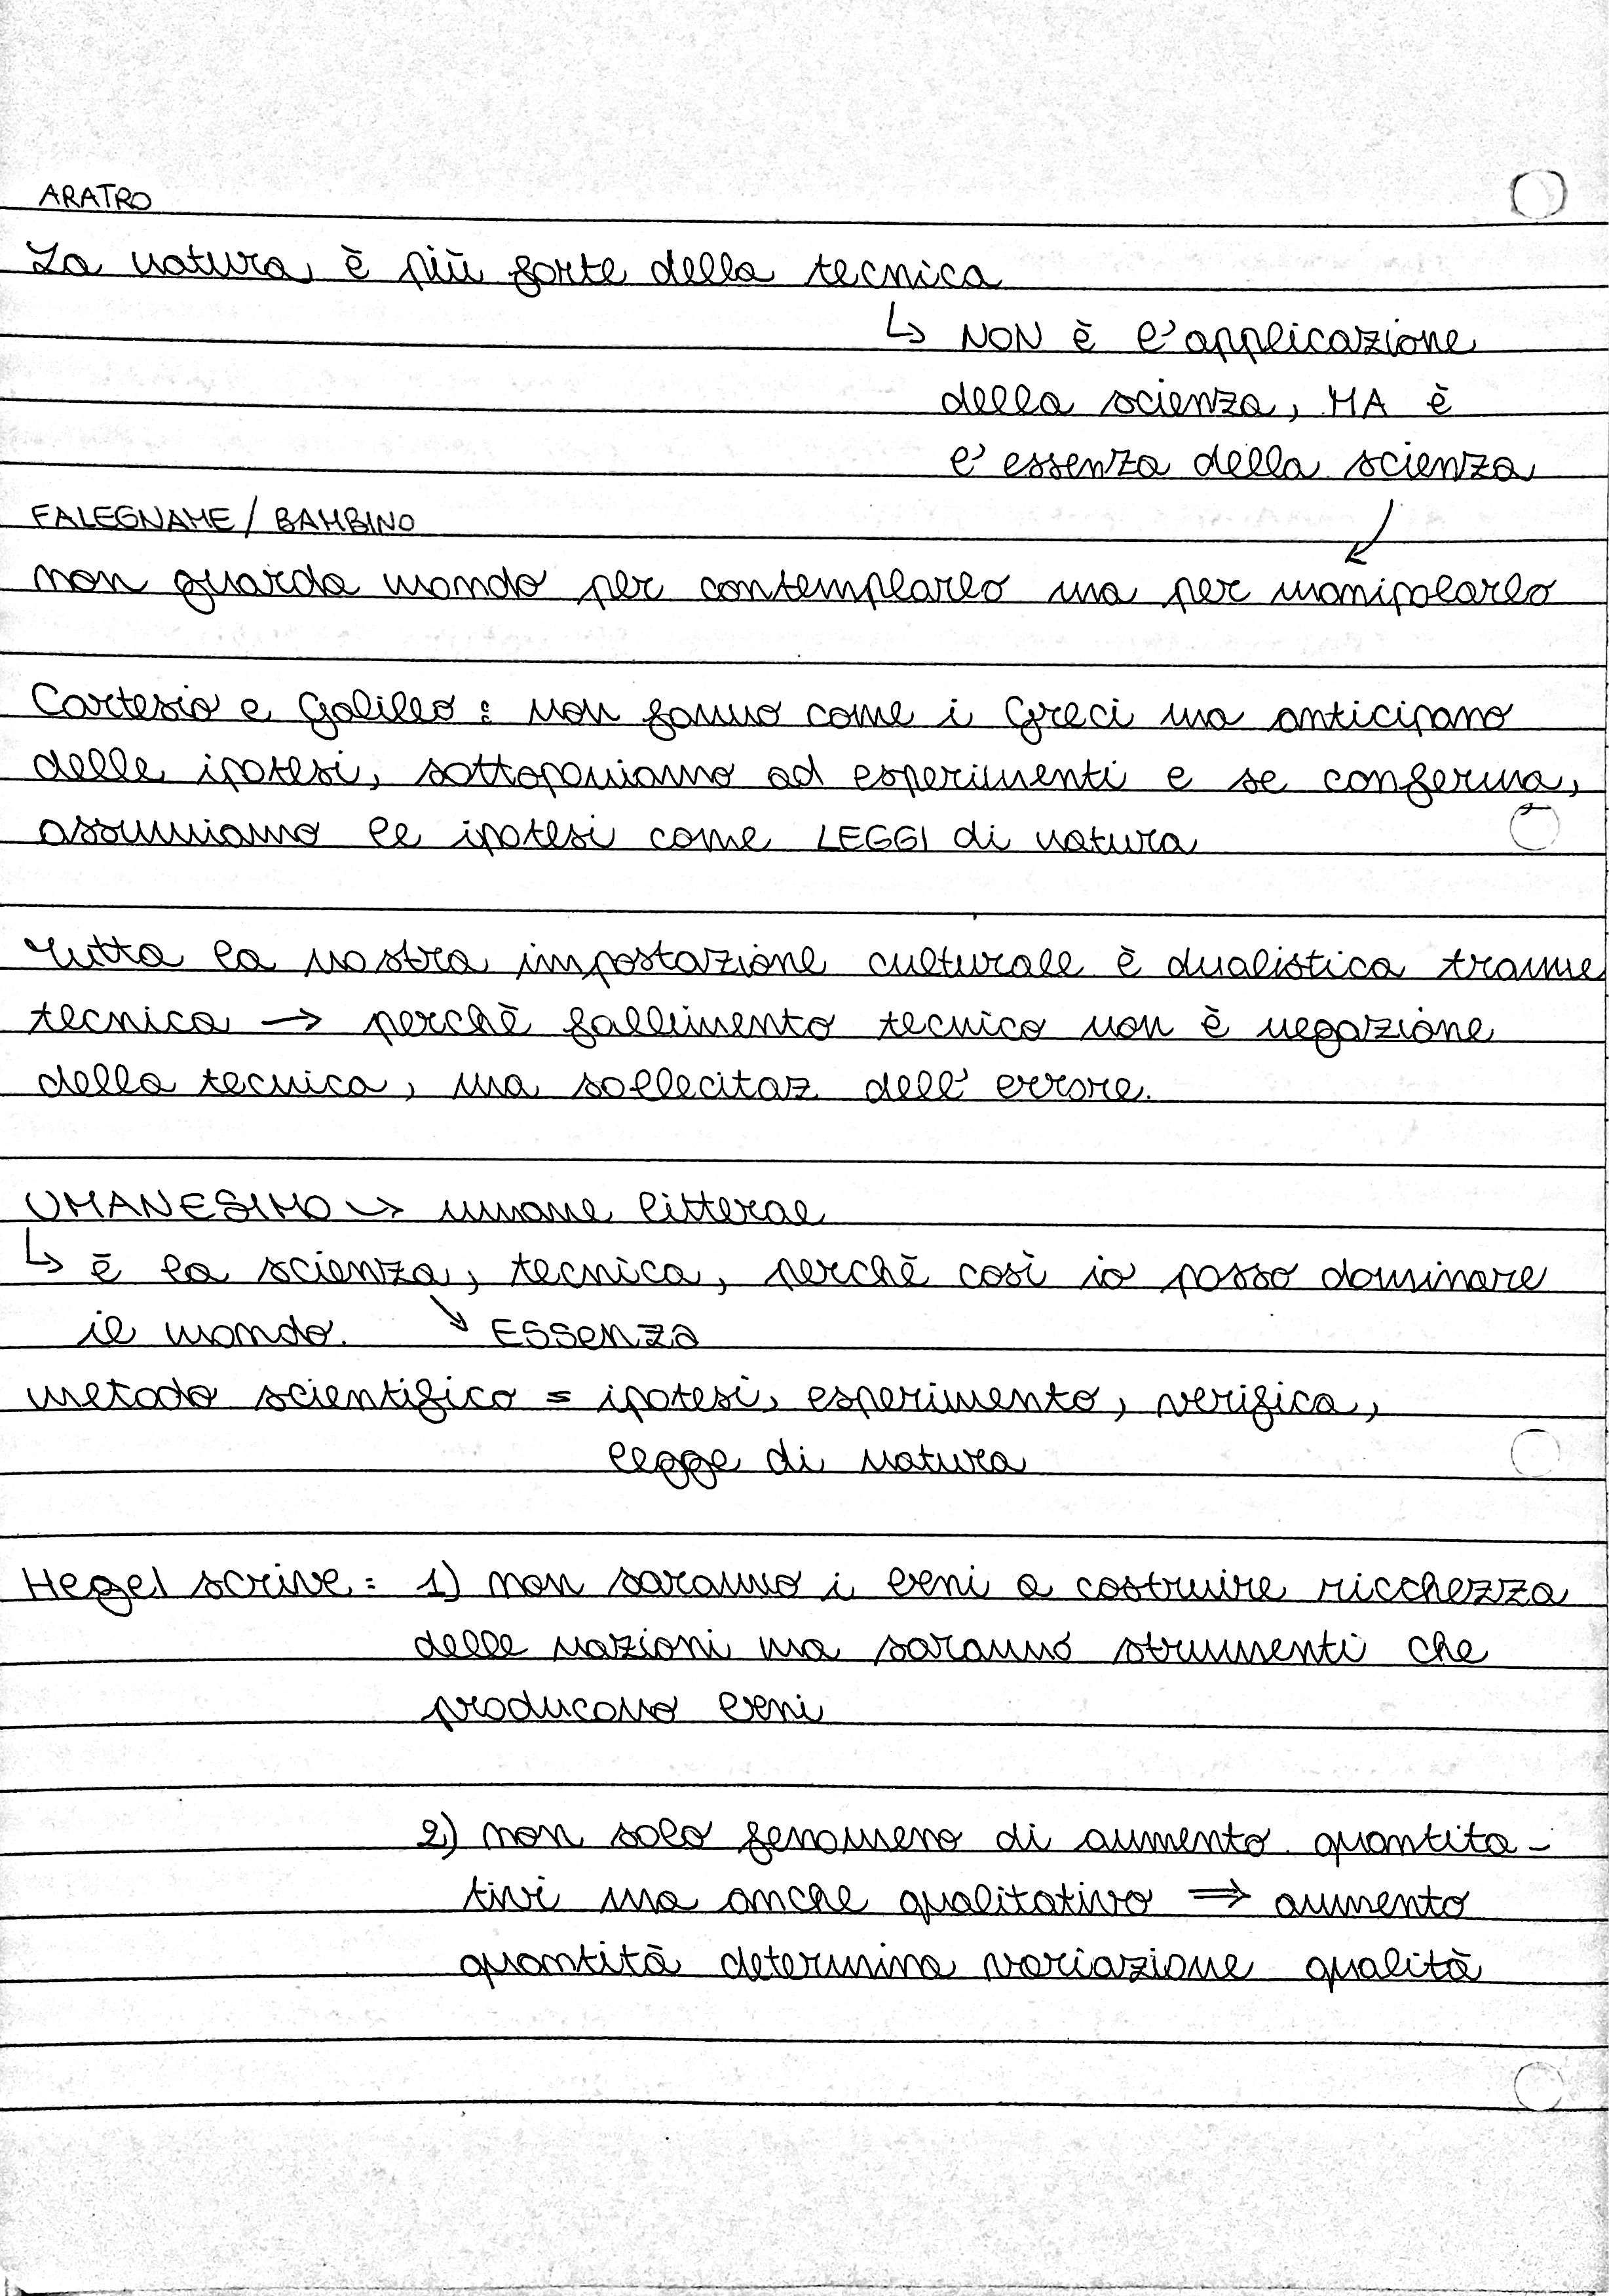 ARATRO
La natura è più forte della tecnica
↳ NON è l'applicazione
della scienza, MA è
l'essenza della scienza
FALEGNAME / BAMBINO
non guarda mondo per contemplarlo ma per manipolarlo
Cartesio e Galileo : non fanno come i Greci ma anticipano
delle ipotesi, sottoponiamo ad esperimenti e se conferma,
assumiamo le ipotesi come LEGGI di natura
Tutta la nostra impostazione culturale è dualistica tranne
tecnica → perchè fallimento tecnico non è negazione
della tecnica, ma sollecitaz dell'errore.
UMANESIMO → umane litterae
↳ è la scienza, tecnica, perchè così io posso dominare
il mondo. ↘ ESSENZA
metodo scientifico = ipotesi, esperimento, verifica,
legge di natura
Hegel scrive : 1) non saranno i beni a costruire ricchezza
delle nazioni ma saranno strumenti che
producono beni
2) non solo fenomeno di aumento quantita-
tivi ma anche qualitativo ⇒ aumento
quantità determina variazione qualità